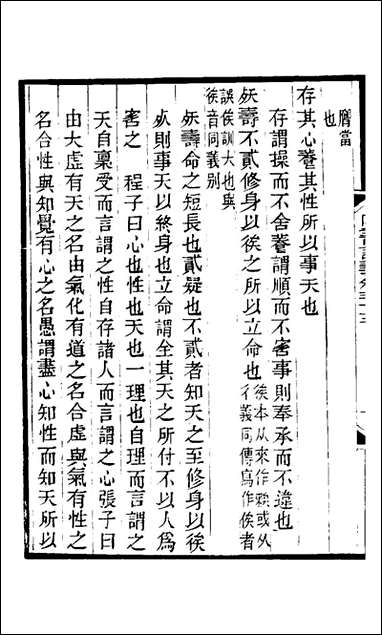 當
也
存其心養其性所以事天也
存謂操而不舍養謂順而不害事則奉承而不違也
殀壽不貳修身以俟之所以立命也
俟本从來作竢或从
彳義同傳寫作俟者
誤俟訓大也與
俟音同義別
殀壽命之短長也貳疑也不貳者知天之至修身以俟
死則事天以終身也立命謂全其天之所付不以人爲
害之　程子曰心也性也天也一理也自理而言謂之
天自稟受而言謂之性自存諸人而言謂之心張子曰
由大虛有天之名由氣化有道之名合虛與氣有性之
名合性與知覺有心之名愚謂盡心知性而知天所以